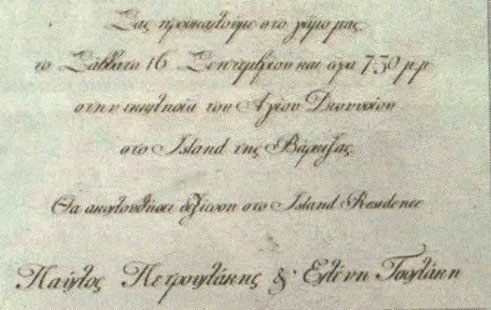 Σας προσκαλούμε στο γάμο μας
το Σάββατο 16 Σεπτεμβρίου και ώρα 7.30 μ.μ
στην εκκλησία του Αγίου Διονυσίου
στο Island της Βάρκιζας
Θα ακολουθήσει δεξίωση στο Island Residence
Παύλος Πετρουλάκης & Ελένη